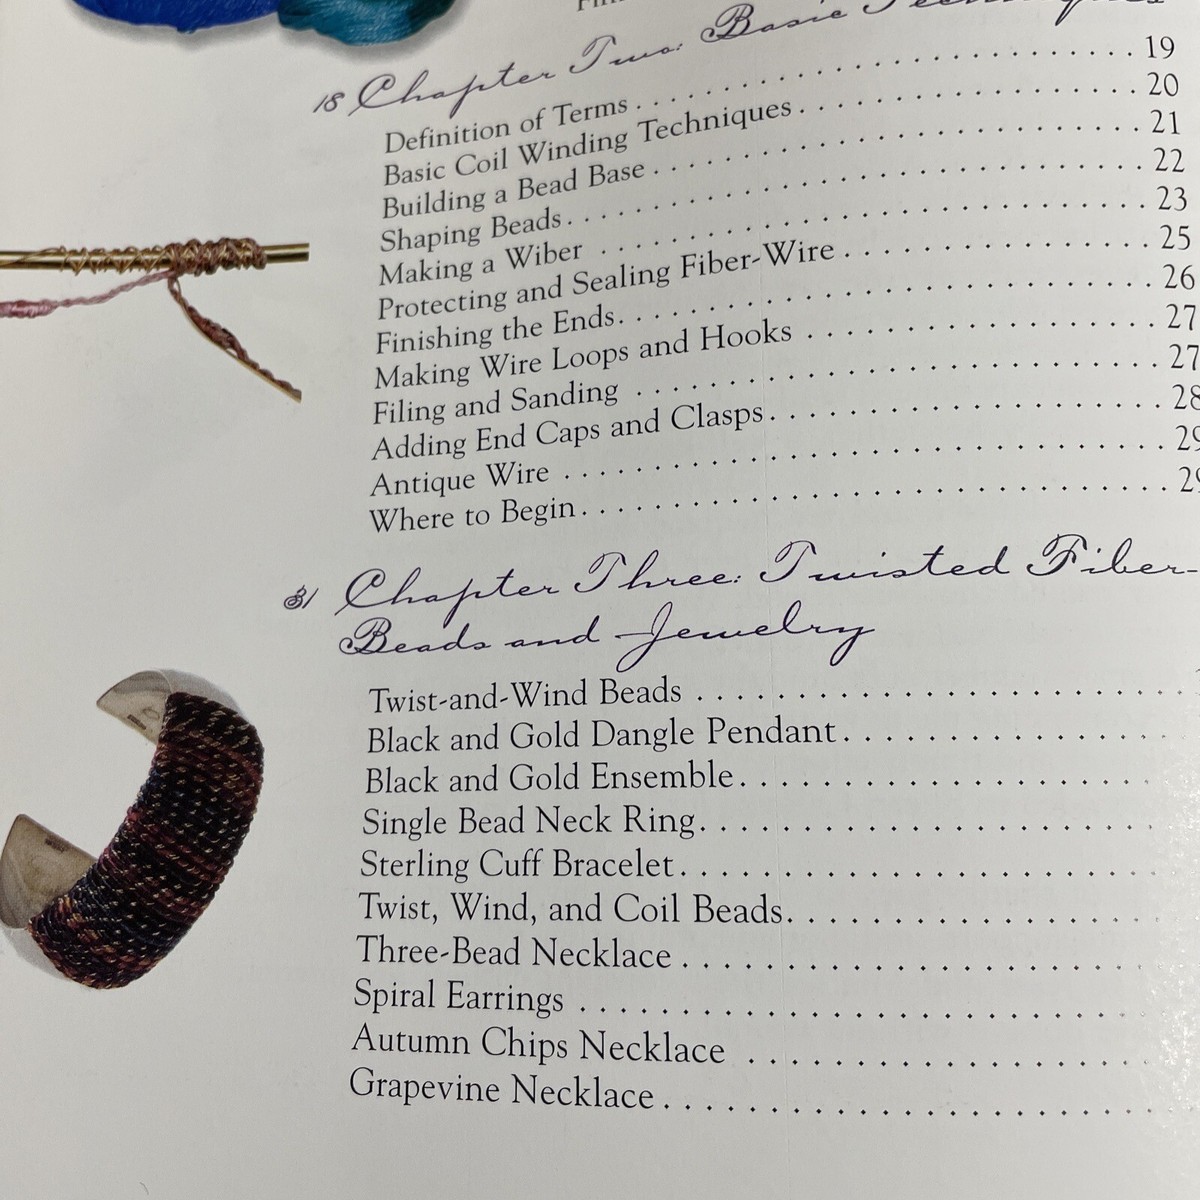 18 Chapter Two: Basic Techniques
Definition of Terms . . . . . . . . . . . . . . . . . . . . 19
Basic Coil Winding Techniques . . . . . . . . . . . . . . 20
Building a Bead Base . . . . . . . . . . . . . . . . . . . 21
Shaping Beads . . . . . . . . . . . . . . . . . . . . . . 22
Making a Wiber . . . . . . . . . . . . . . . . . . . . . 23
Protecting and Sealing Fiber-Wire . . . . . . . . . . . . 25
Finishing the Ends . . . . . . . . . . . . . . . . . . . . 26
Making Wire Loops and Hooks . . . . . . . . . . . . . . 27
Filing and Sanding . . . . . . . . . . . . . . . . . . . . 27
Adding End Caps and Clasps . . . . . . . . . . . . . . . 28
Antique Wire . . . . . . . . . . . . . . . . . . . . . . 29
Where to Begin . . . . . . . . . . . . . . . . . . . . . 29
31 Chapter Three: Twisted Fiber-
Beads and Jewelry
Twist-and-Wind Beads . . . . . . . . . . . . . . . . .
Black and Gold Dangle Pendant . . . . . . . . . . . .
Black and Gold Ensemble . . . . . . . . . . . . . . .
Single Bead Neck Ring . . . . . . . . . . . . . . . . .
Sterling Cuff Bracelet . . . . . . . . . . . . . . . . .
Twist, Wind, and Coil Beads . . . . . . . . . . . . .
Three-Bead Necklace . . . . . . . . . . . . . . . . .
Spiral Earrings . . . . . . . . . . . . . . . . . . . .
Autumn Chips Necklace . . . . . . . . . . . . . . .
Grapevine Necklace . . . . . . . . . . . . . . . . .